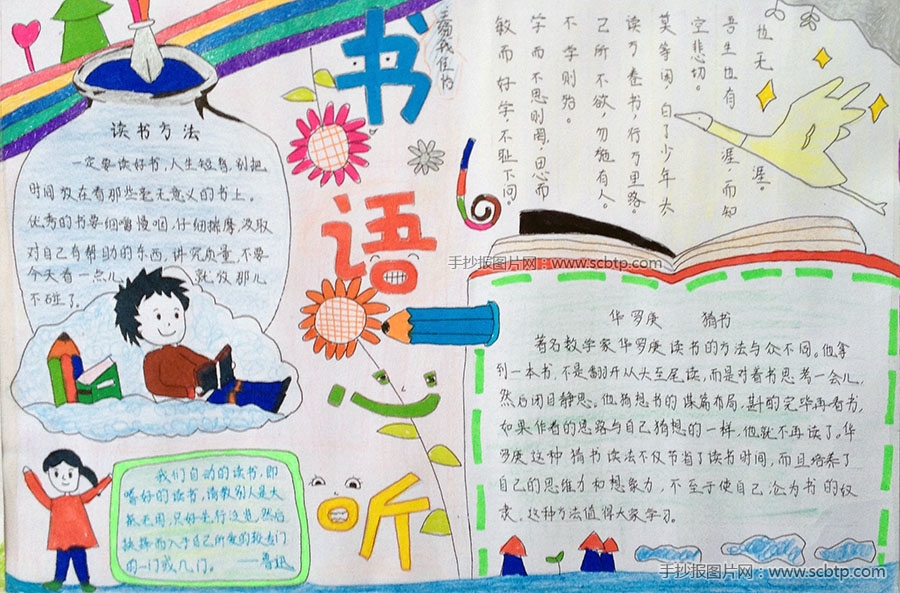 书
语
心
听
读书方法
一定要读好书,人生短暂,别把
时间放在看那些毫无意义的书上。
优秀的书要细嚼慢咽,仔细揣摩,汲取
对自己有帮助的东西,讲究质量,不要
今天看一点儿 就放那儿
不碰了。
我们自动的读书,即
嗜好的读书,请教别人是大
抵无用,只好先行泛览,然后
抉择而入于自己所爱的较专门
的一门或几门。 ——鲁迅
敏而好学,不耻下问。
学而不思则罔,思而
不学则殆。
己所不欲,勿施有人。
读万卷书,行万里路。
莫等闲,白了少年头
空悲切。
吾生也有涯,而知
也无涯。
手抄报图片网:www.scbtp.com
华罗庚 猜书
著名数学家华罗庚读书的方法与众不同。他拿
到一本书,不是翻开从头至尾读,而是对着书思考一会儿,
然后闭目静思。他猜想书的谋篇布局,斟酌完毕再看书,
如果作者的思路与自己猜想的一样,他就不再读了。华
罗庚这种猜书读法不仅节省了读书时间,而且培养了
自己的思维力和想象力,不至于使自己沦为书的奴
隶。这种方法值得大家学习。
手抄报图片网:www.scbtp.com